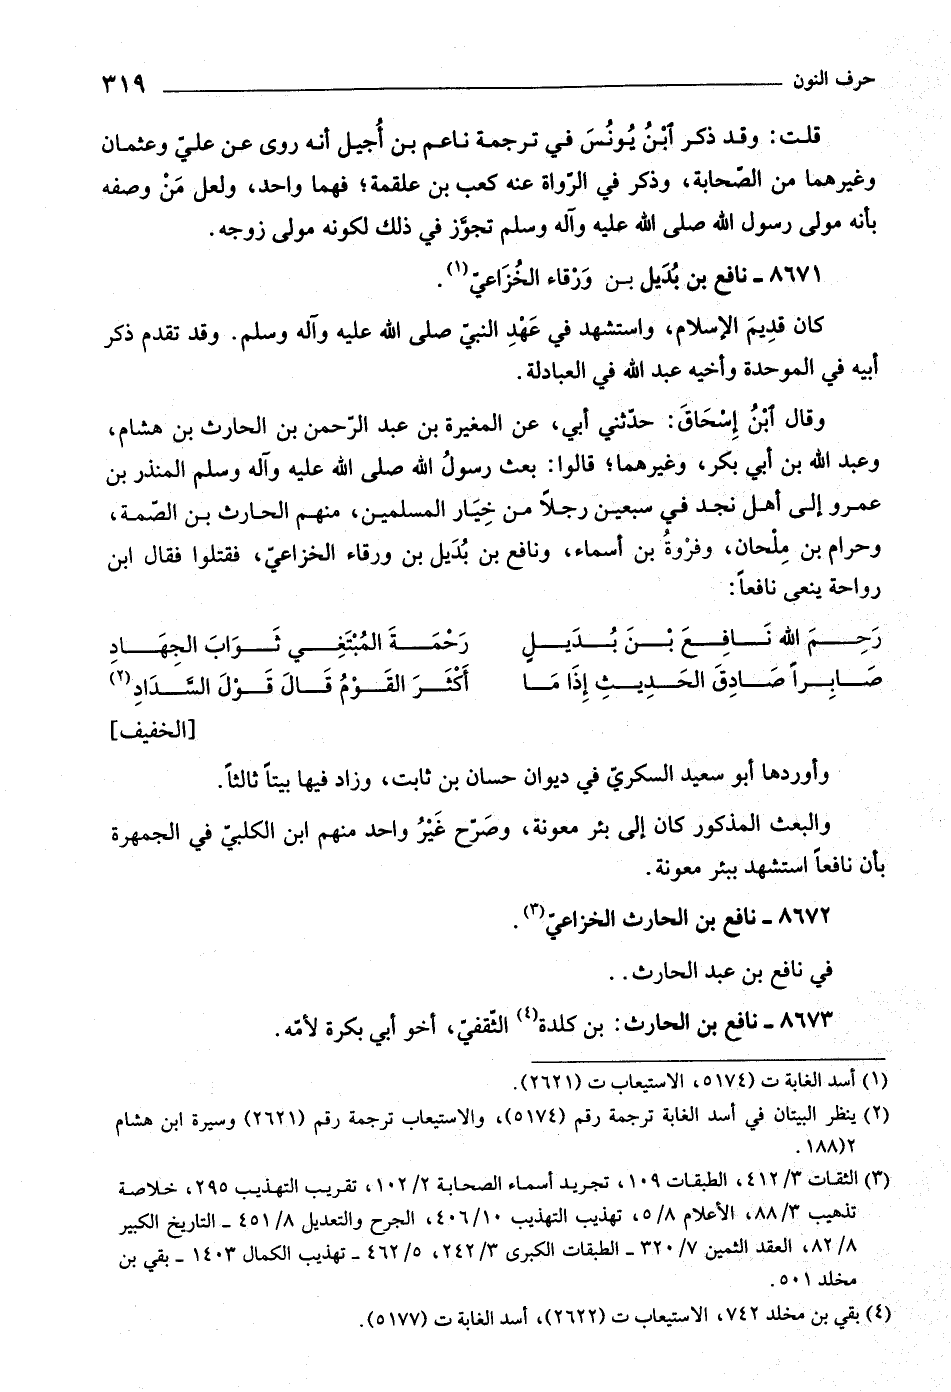 حرف النون ٣١٩
قلت: وقد ذكر ٱبْنُ يُونُسَ في ترجمة ناعم بن أُجيل أنه روى عن عليّ وعثمان
وغيرهما من الصّحابة، وذكر في الرّواة عنه كعب بن علقمة؛ فهما واحد، ولعل مَنْ وصفه
بأنه مولى رسول الله صلى الله عليه وآله وسلم تجوَّز في ذلك لكونه مولى زوجه.
٨٦٧١ ـ نافع بن بُدَيل بـن وَرْقاء الخُزَاعيّ(١).
كان قدِيمَ الإسلام، واستشهد في عَهْدِ النبيّ صلى الله عليه وآله وسلم. وقد تقدم ذكر
أبيه في الموحدة وأخيه عبد الله في العبادلة.
وقال ٱبْنُ إِسْحَاقَ: حدّثني أبي، عن المغيرة بن عبد الرّحمن بن الحارث بن هشام،
وعبد الله بن أبي بكر، وغيرهما؛ قالوا: بعث رسولُ الله صلى الله عليه وآله وسلم المنذر بن
عمرو إلى أهل نجد في سبعين رجلاً من خِيَار المسلمين، منهم الحارث بن الصّمة،
وحرام بن مِلْحان، وفرْوةُ بن أسماء، ونافع بن بُدَيل بن ورقاء الخزاعيّ، فقتلوا فقال ابن
رواحة ينعى نافعاً:
رَحِــمَ الله نَــافِــعَ بْــنَ بُــدَيــلٍ رَحْمَــةَ المُبْتَغِــي ثَــوَابَ الجِهَــادِ
صَــابِــراً صَــادِقَ الحَــدِيــثِ إِذَا مَــا أَكْثَــرَ القَــوْمُ قَــالَ قَــوْلَ السَّــدَادِ(٢)
[الخفيف]
وأوردها أبو سعيد السكريّ في ديوان حسان بن ثابت، وزاد فيها بيتاً ثالثاً.
والبعث المذكور كان إلى بئر معونة، وصَرّح غَيْرُ واحد منهم ابن الكلبيّ في الجمهرة
بأن نافعاً استشهد ببئر معونة.
٨٦٧٢ ـ نافع بن الحارث الخزاعيّ(٣).
في نافع بن عبد الحارث..
٨٦٧٣ ـ نافع بن الحارث: بن كلدة(٤) الثّقفيّ، أخو أبي بكرة لأمّه.
(١) أسد الغابة ت (٥١٧٤، الاستيعاب ت (٢٦٢١).
(٢) ينظر البيتان في أسد الغابة ترجمة رقم (٥١٧٤)، والاستيعاب ترجمة رقم (٢٦٢١) وسيرة ابن هشام
٢(١٨٨.
(٣) الثقات ٤١٢/٣، الطبقات ١٠٩، تجريد أسماء الصحابة ١٠٢/٢، تقريب التهذيب ٢٩٥، خلاصة
تذهيب ٨٨/٣، الأعلام ٥/٨، تهذيب التهذيب ٤٠٦/١٠، الجرح والتعديل ٤٥١/٨ ـ التاريخ الكبير
٨٢/٨، العقد الثمين ٣٢٠/٧ ـ الطبقات الكبرى ٢٤٢/٣، ٤٦٢/٥ ـ تهذيب الكمال ١٤٠٣ ـ بقي بن
مخلد ٥٠١.
(٤) بقي بن مخلد ٧٤٢، الاستيعاب ت (٢٦٢٢)، أسد الغابة ت (٥١٧٧).